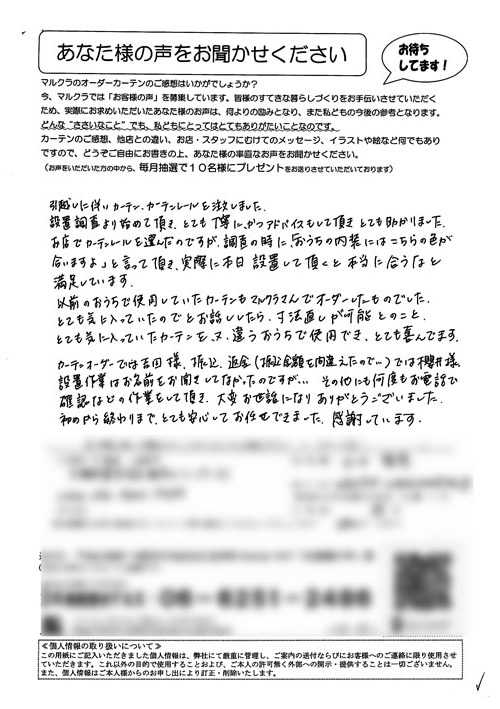 あなた様の声をお聞かせください
お待ち
してます!
マルクラのオーダーカーテンのご感想はいかがでしょうか?
今、マルクラでは「お客様の声」を募集しています。皆様のすてきな暮らしづくりをお手伝いさせていただく
ため、実際にお求めいただいたあなた様のお声は、何よりの励みとなり、また私どもの今後の参考となります。
どんな“ささいなこと”でも、私どもにとってはとてもありがたいことなのです。
カーテンのご感想、他店との違い、お店・スタッフにむけてのメッセージ、イラストや絵など何でもあり
ですので、どうぞご自由にお書きの上、あなた様の率直なお声をお聞かせください。
(お声をいただいた方の中から、毎月抽選で10名様にプレゼントをお送りさせていただいております)
引越しに伴いカーテン、カーテンレールを注文しました。
設置調査より始めて頂き、とても丁寧に、かつアドバイスもして頂きとても助かりました。
お店でカーテンレールを選んだのですが、調査の時に「おうちの内装にはこちらの色が
合いますよ」と言って頂き、実際に本日設置して頂くと本当に合うなと
満足しています。
以前のおうちで使用していたカーテンもマルクラさんでオーダーしたものでした。
とても気に入っていたのでとお話ししたら、寸法直しが可能とのこと。
とても気に入っていたカーテンを、又、違うおうちで使用でき、とても喜んでます。
カーテンオーダーでは吉田様、振込、返金(振込金額を間違えたので…)では櫻井様、
設置作業はお名前をお聞きしてなかったのですが… その他にも何度もお電話で
確認などの作業をして頂き、大変お世話になりありがとうございました。
初めから終わりまで、とても安心してお任せできました。感謝しています。
06-6251-2486
≪個人情報の取り扱いについて≫
この用紙にご記入いただきました個人情報は、弊社にて厳重に管理し、ご案内の送付ならびにお客様へのご連絡に限り使用させ
ていただきます。これ以外の目的で使用することおよび、ご本人の許可無く外部への開示・提供することは一切ございません。
また、個人情報はご本人様からのお申し出により訂正・削除いたします。